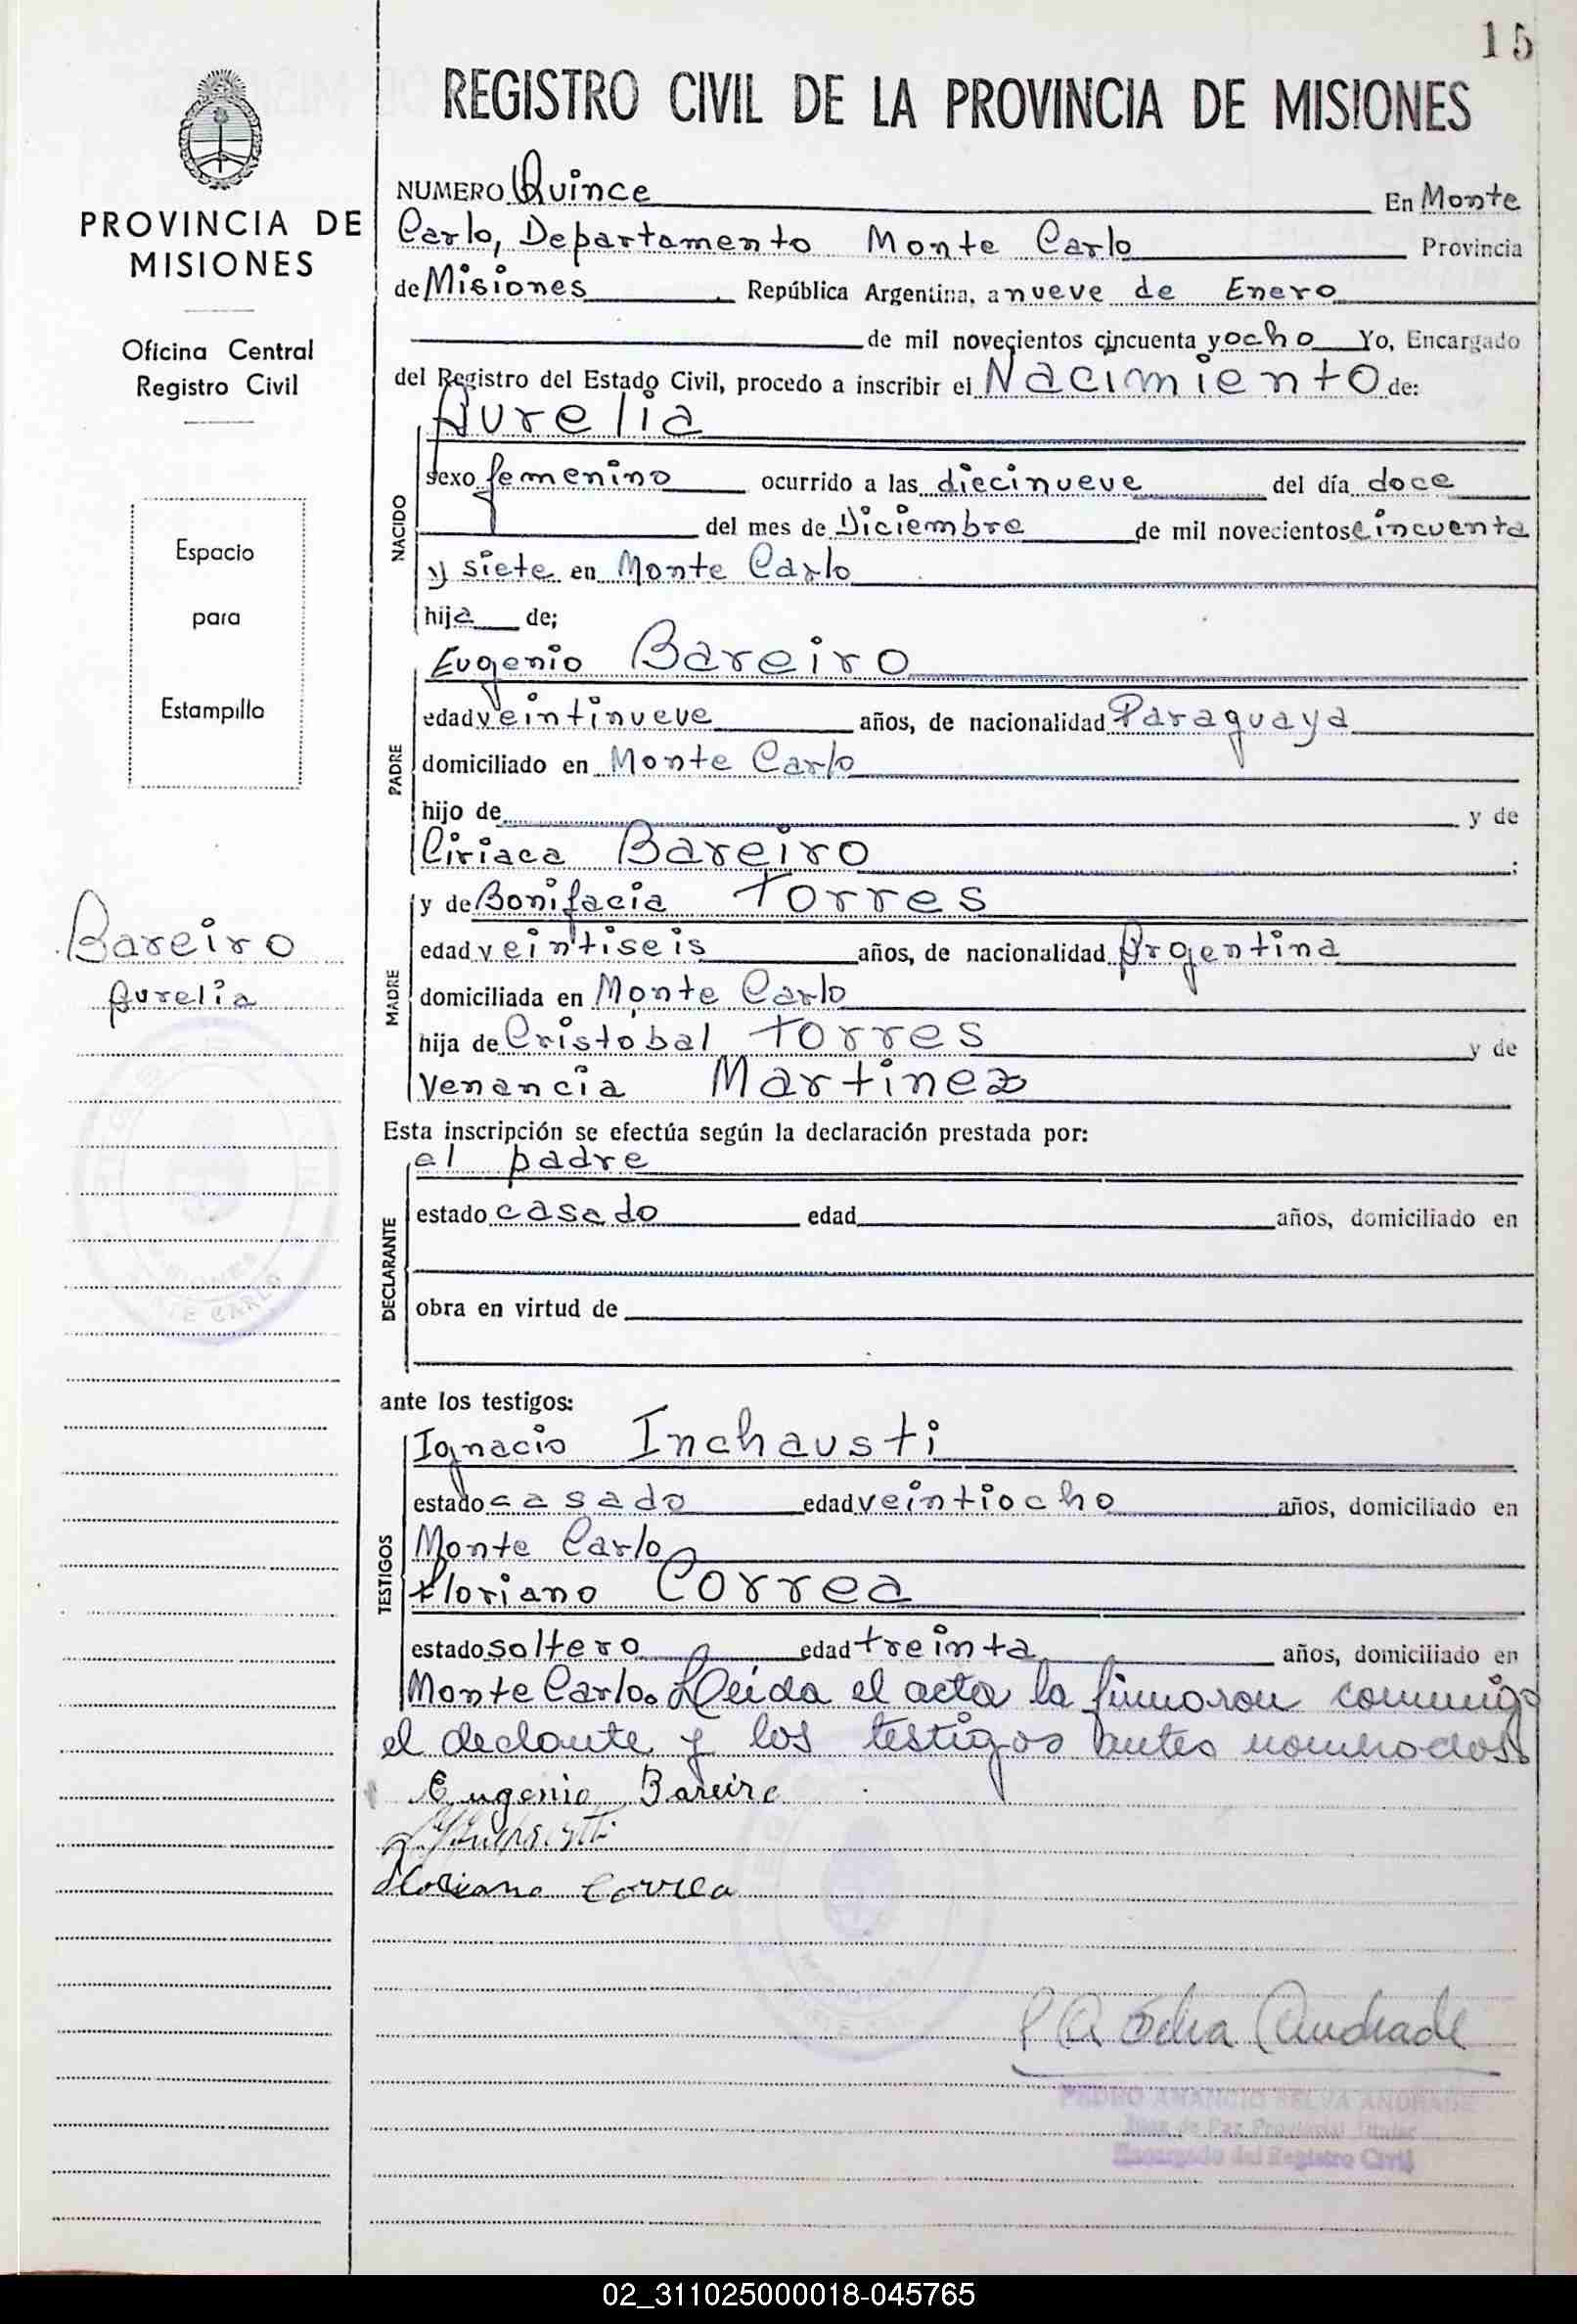 15
REGISTRO CIVIL DE LA PROVINCIA DE MISIONES
PROVINCIA DE
MISIONES
Oficina Central
Registro Civil
Espacio
para
Estampilla
Bareiro
Aurelia
NUMERO Quince En Monte
Carlo, Departamento Monte Carlo Provincia
de Misiones República Argentina, a nueve de Enero
de mil novecientos cincuenta y ocho Yo, Encargado
del Registro del Estado Civil, procedo a inscribir el Nacimiento de:
NACIDO
Aurelia
sexo femenino ocurrido a las diecinueve del día doce
del mes de Diciembre de mil novecientos cincuenta
y siete en Monte Carlo
hija de;
PADRE
Eugenio Bareiro
edad veintinueve años, de nacionalidad Paraguaya
domiciliado en Monte Carlo
hijo de y de
Ciriaca Bareiro ;
MADRE
y de Bonifacia Torres
edad veintiseis años, de nacionalidad Argentina
domiciliada en Monte Carlo
hija de Cristobal Torres y de
Venancia Martinez
Esta inscripción se efectúa según la declaración prestada por:
DECLARANTE
el padre
estado casado edad años, domiciliado en
obra en virtud de
ante los testigos:
TESTIGOS
Ignacio Inchausti
estado casado edad veintiocho años, domiciliado en
Monte Carlo
Floriano Correa
estado soltero edad treinta años, domiciliado en
Monte Carlo. Leida el acta la firmaron conmigo
el declante y los testigos antes nombrados
Eugenio Bareiro
Floriano Correa
P A Selva Andrade
PEDRO AMANCIO SELVA ANDRADE
Juez de Paz Provincial Titular
Encargado del Registro Civil
MISIONES
MONTE CARLO
02_311025000018-045765